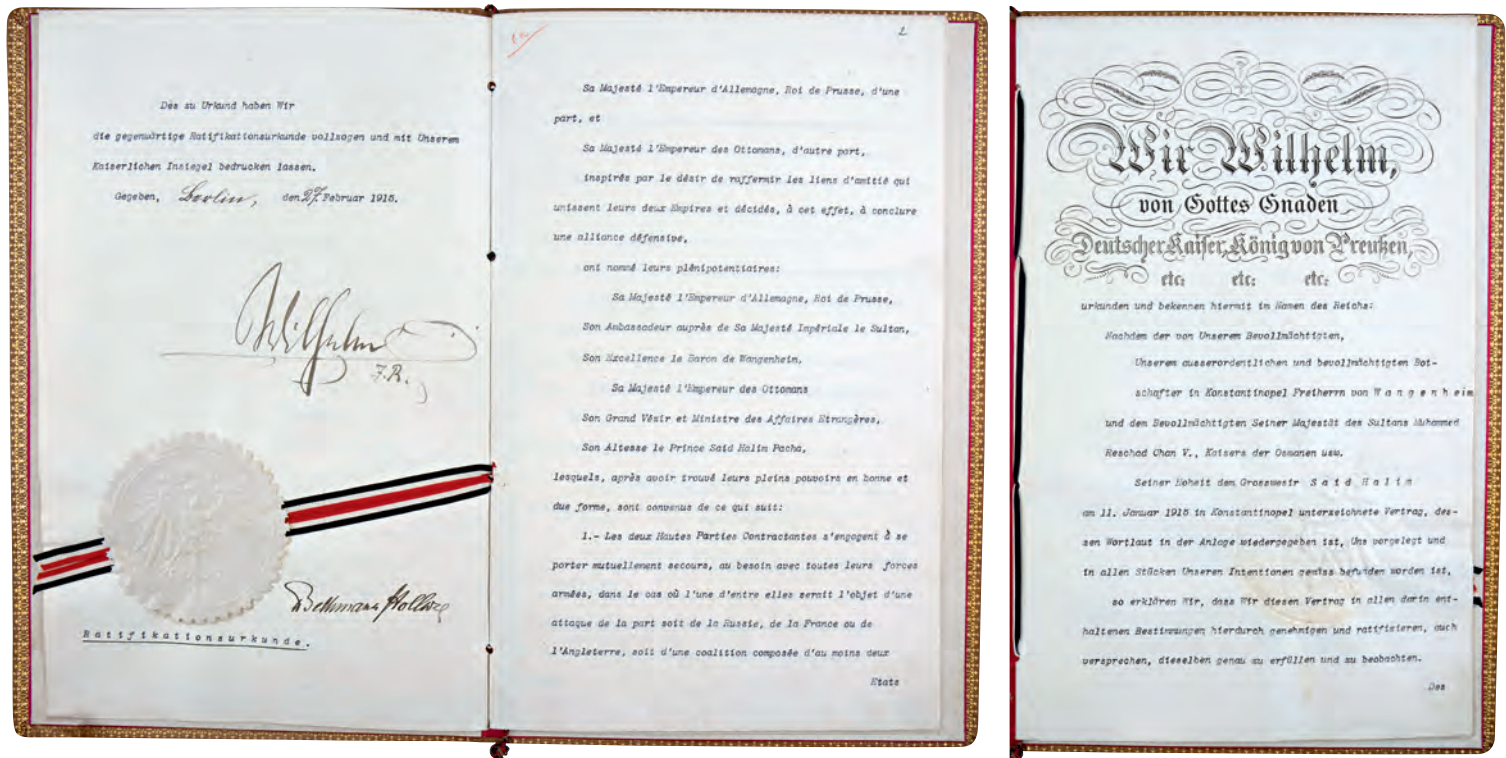 Des zu Urkund haben Wir
die gegenwärtige Ratifikationsurkunde vollzogen und mit Unserem
Kaiserlichen Insiegel bedrucken lassen.
Gegeben, Berlin, den 27. Februar 1915.
Wilhelm
I.R.
Bethmann Hollweg
Ratifikationsurkunde.
2
Sa Majesté l'Empereur d'Allemagne, Roi de Prusse, d'une
part, et
Sa Majesté l'Empereur des Ottomans, d'autre part,
inspirés par le désir de raffermir les liens d'amitié qui
unissent leurs deux Empires et décidés, à cet effet, à conclure
une alliance défensive,
ont nommé leurs plénipotentiaires:
Sa Majesté l'Empereur d'Allemagne, Roi de Prusse,
Son Ambassadeur auprès de Sa Majesté Impériale le Sultan,
Son Excellence le Baron de Wangenheim,
Sa Majesté l'Empereur des Ottomans
Son Grand Vézir et Ministre des Affaires Etrangères,
Son Altesse le Prince Said Halim Pacha,
lesquels, après avoir trouvé leurs pleins pouvoirs en bonne et
due forme, sont convenus de ce qui suit:
1.- Les deux Hautes Parties Contractantes s'engagent à se
porter mutuellement secours, au besoin avec toutes leurs forces
armées, dans le cas où l'une d'entre elles serait l'objet d'une
attaque de la part soit de la Russie, de la France ou de
l'Angleterre, soit d'une coalition composée d'au moins deux
Etats
Wir Wilhelm,
von Gottes Gnaden
Deutscher Kaiser, König von Preußen,
etc. etc. etc.
urkunden und bekennen hiermit im Namen des Reichs:
Nachdem der von Unserem Bevollmächtigten,
Unserem ausserordentlichen und bevollmächtigten Bot-
schafter in Konstantinopel Freiherrn von Wangenheim
und dem Bevollmächtigten Seiner Majestät des Sultans Muhammed
Reschad Chan V., Kaisers der Osmanen usw.
Seiner Hoheit dem Grosswesir Said Halim
am 11. Januar 1915 in Konstantinopel unterzeichnete Vertrag, des-
sen Wortlaut in der Anlage wiedergegeben ist, Uns vorgelegt und
in allen Stücken Unseren Intentionen gemäss befunden worden ist,
so erklären Wir, dass Wir diesen Vertrag in allen darin ent-
haltenen Bestimmungen hierdurch genehmigen und ratifizieren, auch
versprechen, dieselben genau zu erfüllen und zu beobachten.
Des